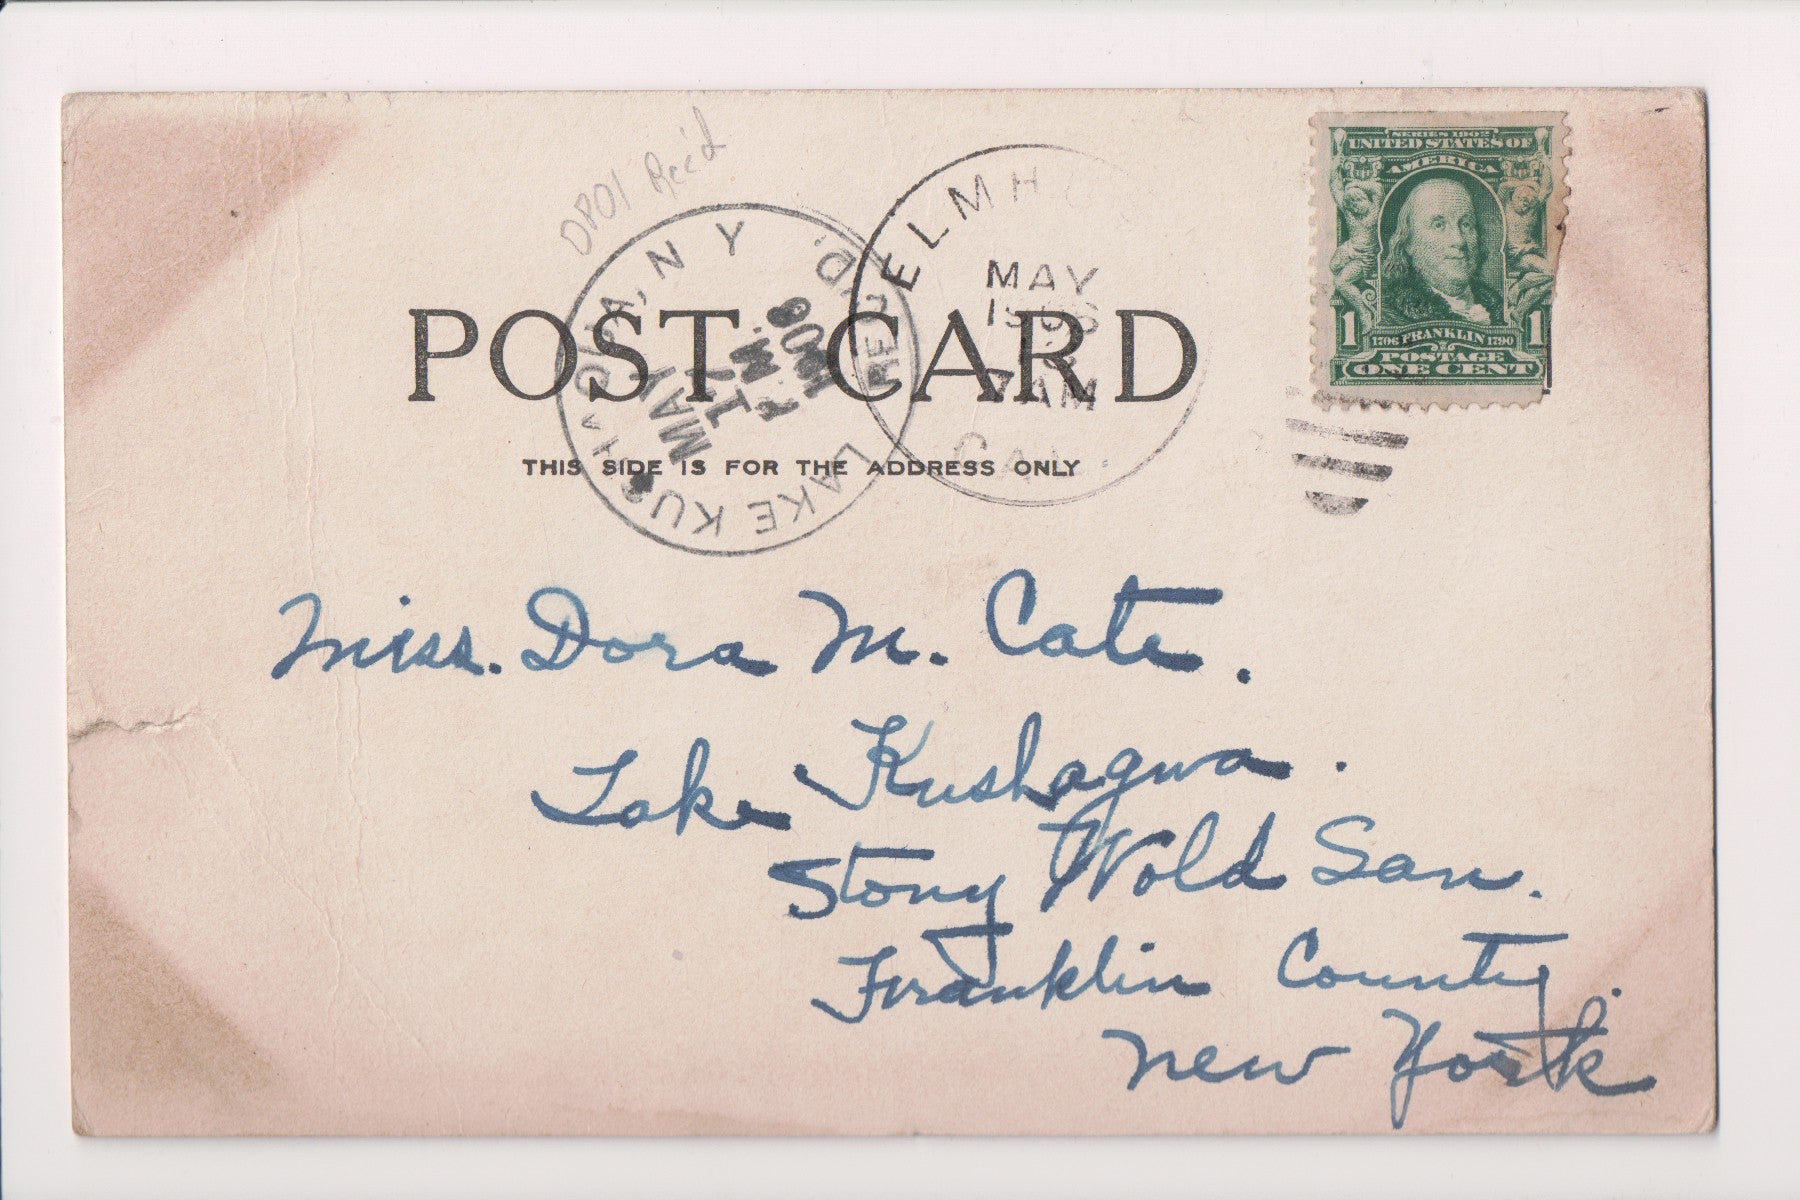 0801 Rec'd
SERIES 1902
UNITED STATES OF
AMERICA
1706 FRANKLIN 1790
1 1
POSTAGE
ONE CENT
ELMH
MAY
7 AM
CAL.
LAKE KUSHAQUA, N Y REC'D.
MAY
17
POST CARD
THIS SIDE IS FOR THE ADDRESS ONLY
Miss. Dora M. Cate.
Lake Kushaqua.
Stony Wold San.
Franklin County.
New York